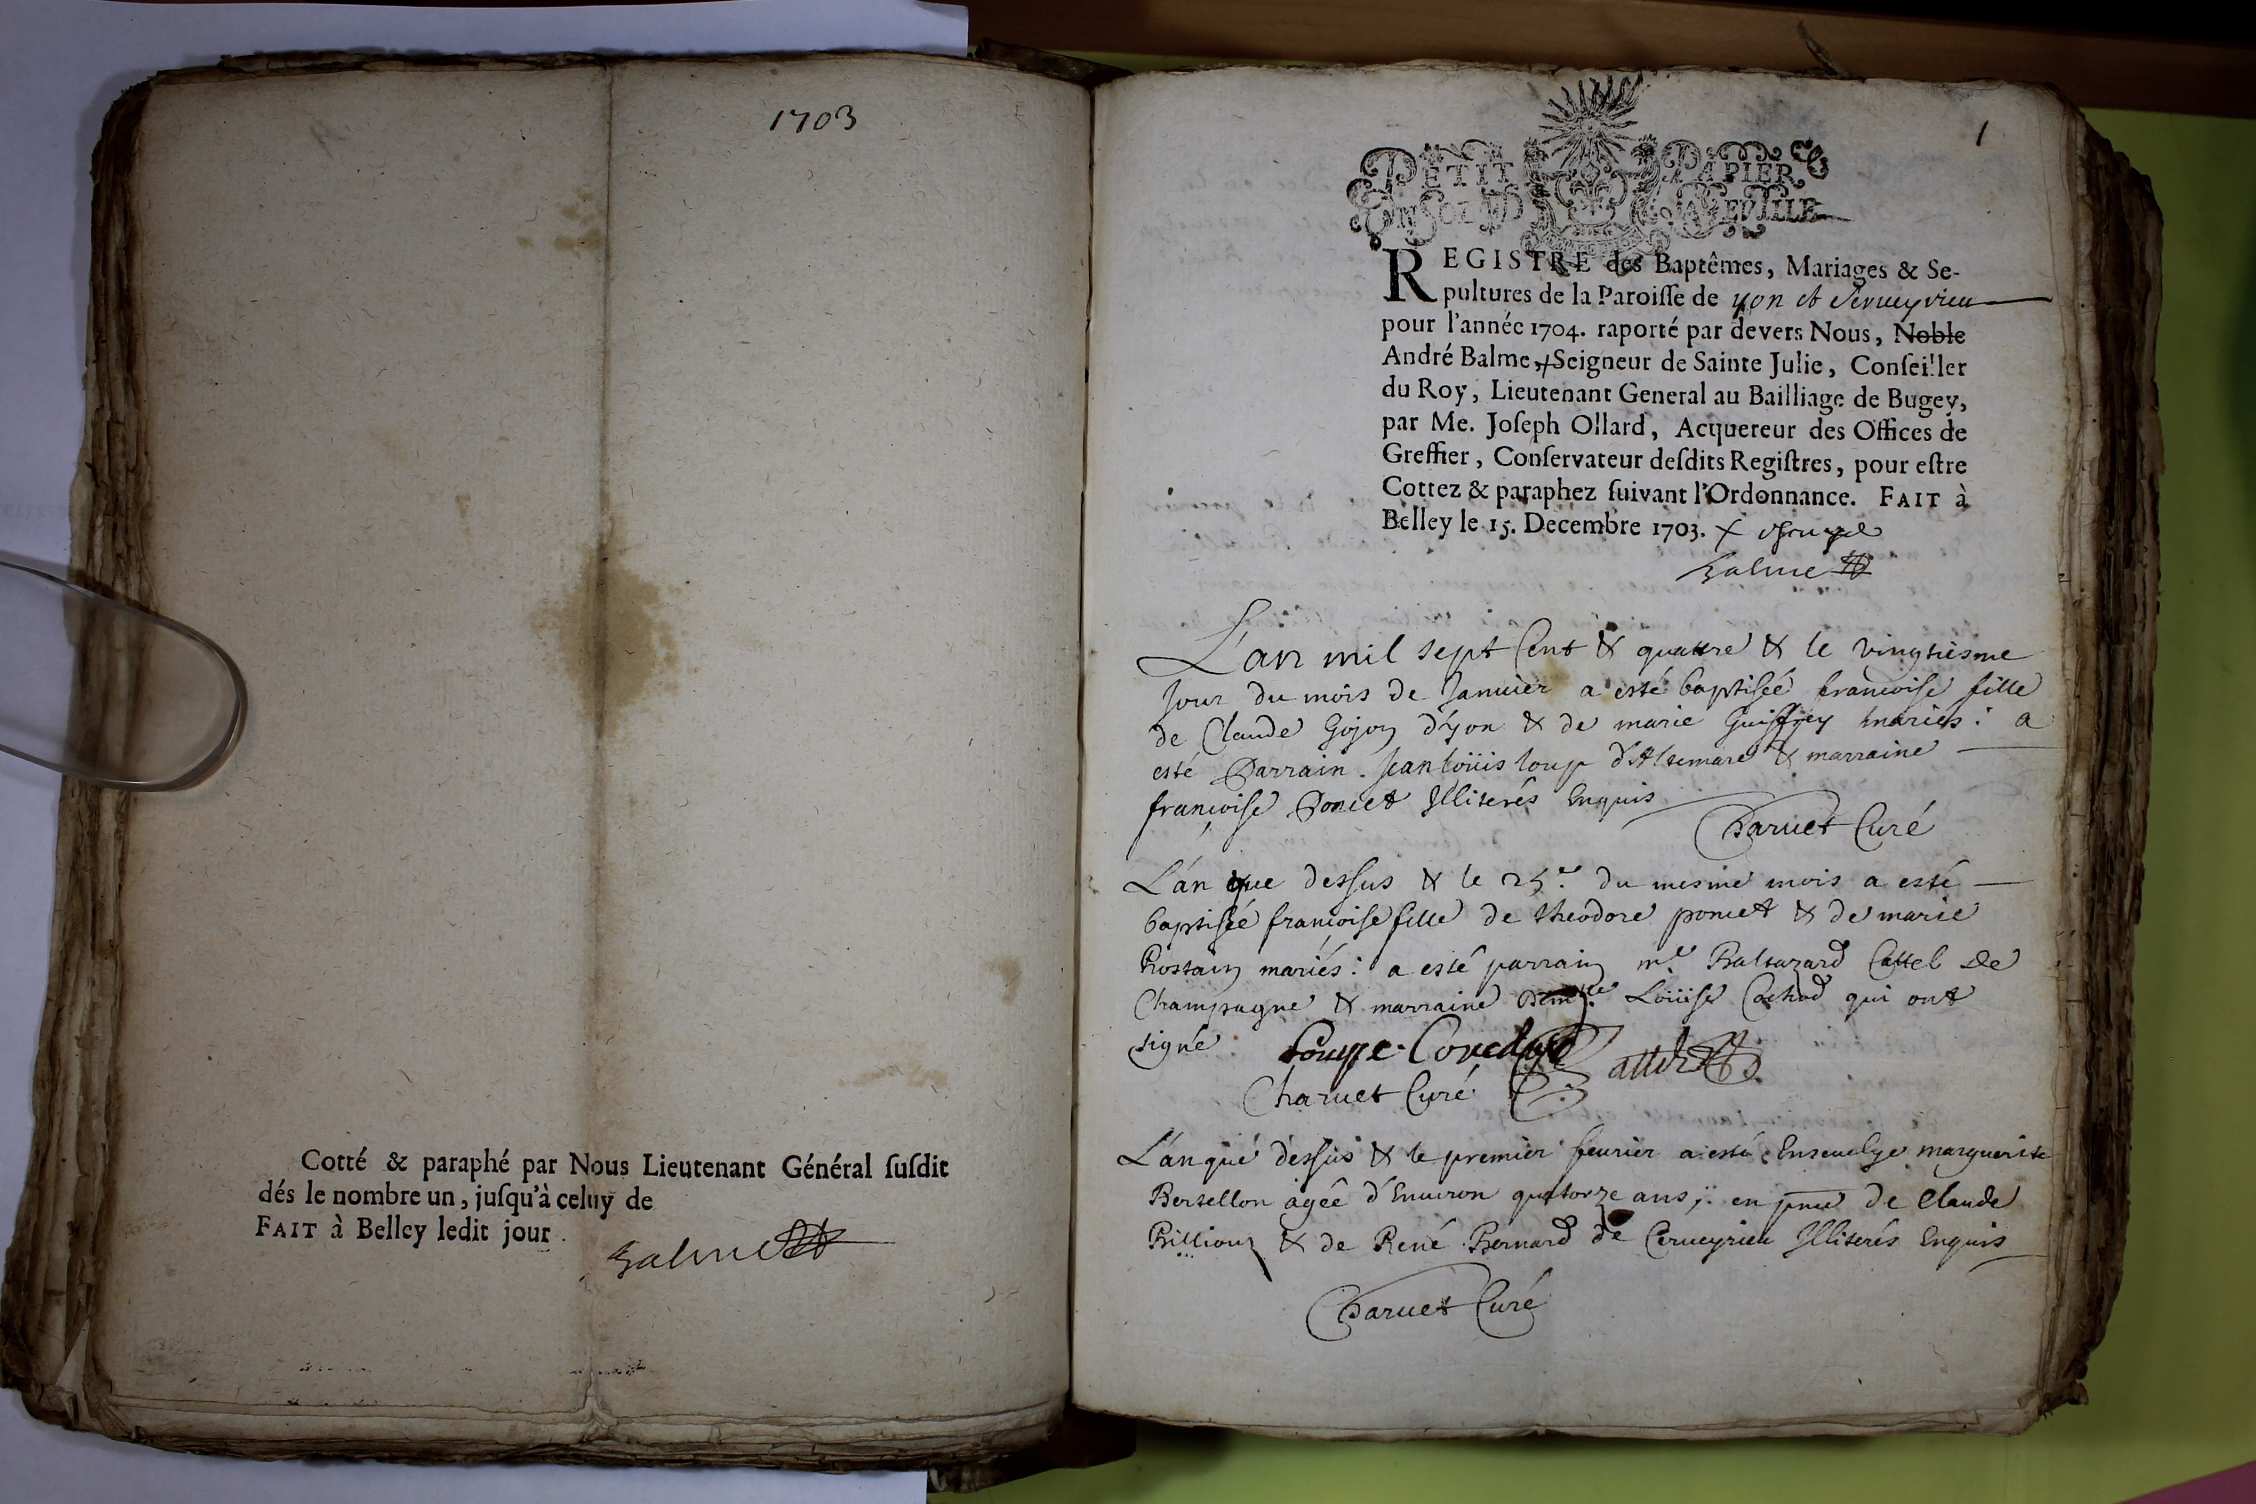 1703
Cotté & paraphé par Nous Lieutenant Général ſuſdit
dés le nombre un, juſqu'à celuy de
FAIT à Belley ledit jour.
Balme
1
PETIT PAPIER
UN SOL LA FEUILLE
REGISTRE des Baptêmes, Mariages & Se-
pultures de la Paroiſſe de yon et Serueyrieu
pour l'année 1704. raporté par devers Nous, Noble
André Balme, + Seigneur de Sainte Julie, Conſeiller
du Roy, Lieutenant General au Bailliage de Bugey,
par Me. Joſeph Ollard, Acquereur des Offices de
Greffier, Conſervateur deſdits Regiſtres, pour eſtre
Cottez & paraphez ſuivant l'Ordonnance. FAIT à
Belley le 15. Decembre 1703. +
Balme
L'an mil sept Cent & quattre & le vingtiesme
Jour du mois de Januier a esté baptiseé francoise fille
de Claude Gojon d'yon & de marie Guiffrey mariés : a
esté Parrain. Jean loüis loup d'Altemare & marraine
françoise Poncet Illiterés Enquis
Charuet Curé
L'an que dessus & le 25.e du mesme mois a esté
baptisée francoise fille de theodore poncet & de marie
Rostain mariés : a esté parrain mr. Baltazard Cattel de
Champagne & marraine Demlle Loüise Cochod qui ont
signé.
Charuet Curé
L'an que dessus & le premier feurier a esté Enseuelye marguerite
Bertellon agée d'Enuiron quatorze ans, en pnce de Claude
Billioux & de René Bernard de Cerueyrieu Illiterés Enquis
Charuet Curé